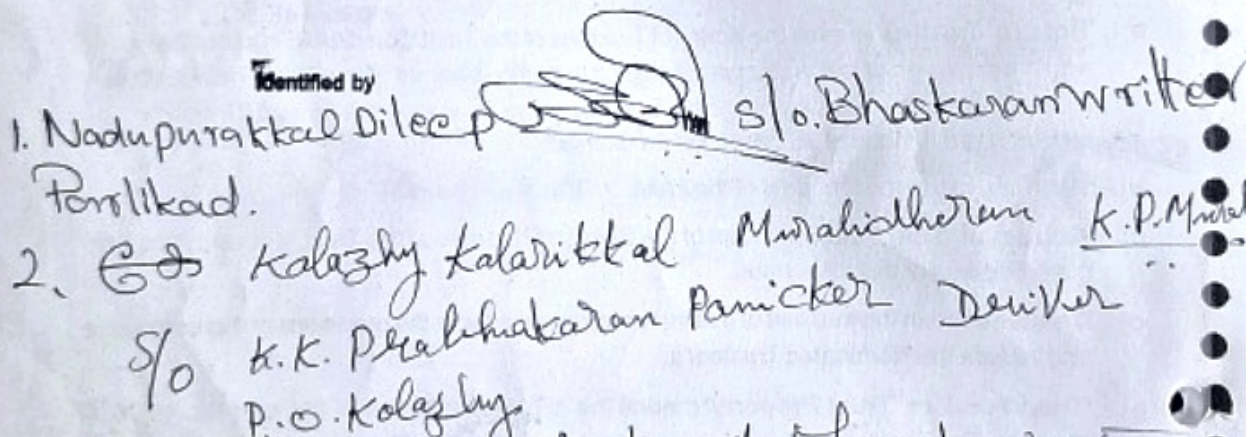 Identified by
1. Nadupurakkal Dileep S/o. Bhaskaran Writter
Porrlikad.
2. Kalazhy Kalarikkal Muralidharan K.P. Mural
S/o K.K. Prabhakaran Panicker Deriver
P.O. Kolazhy.